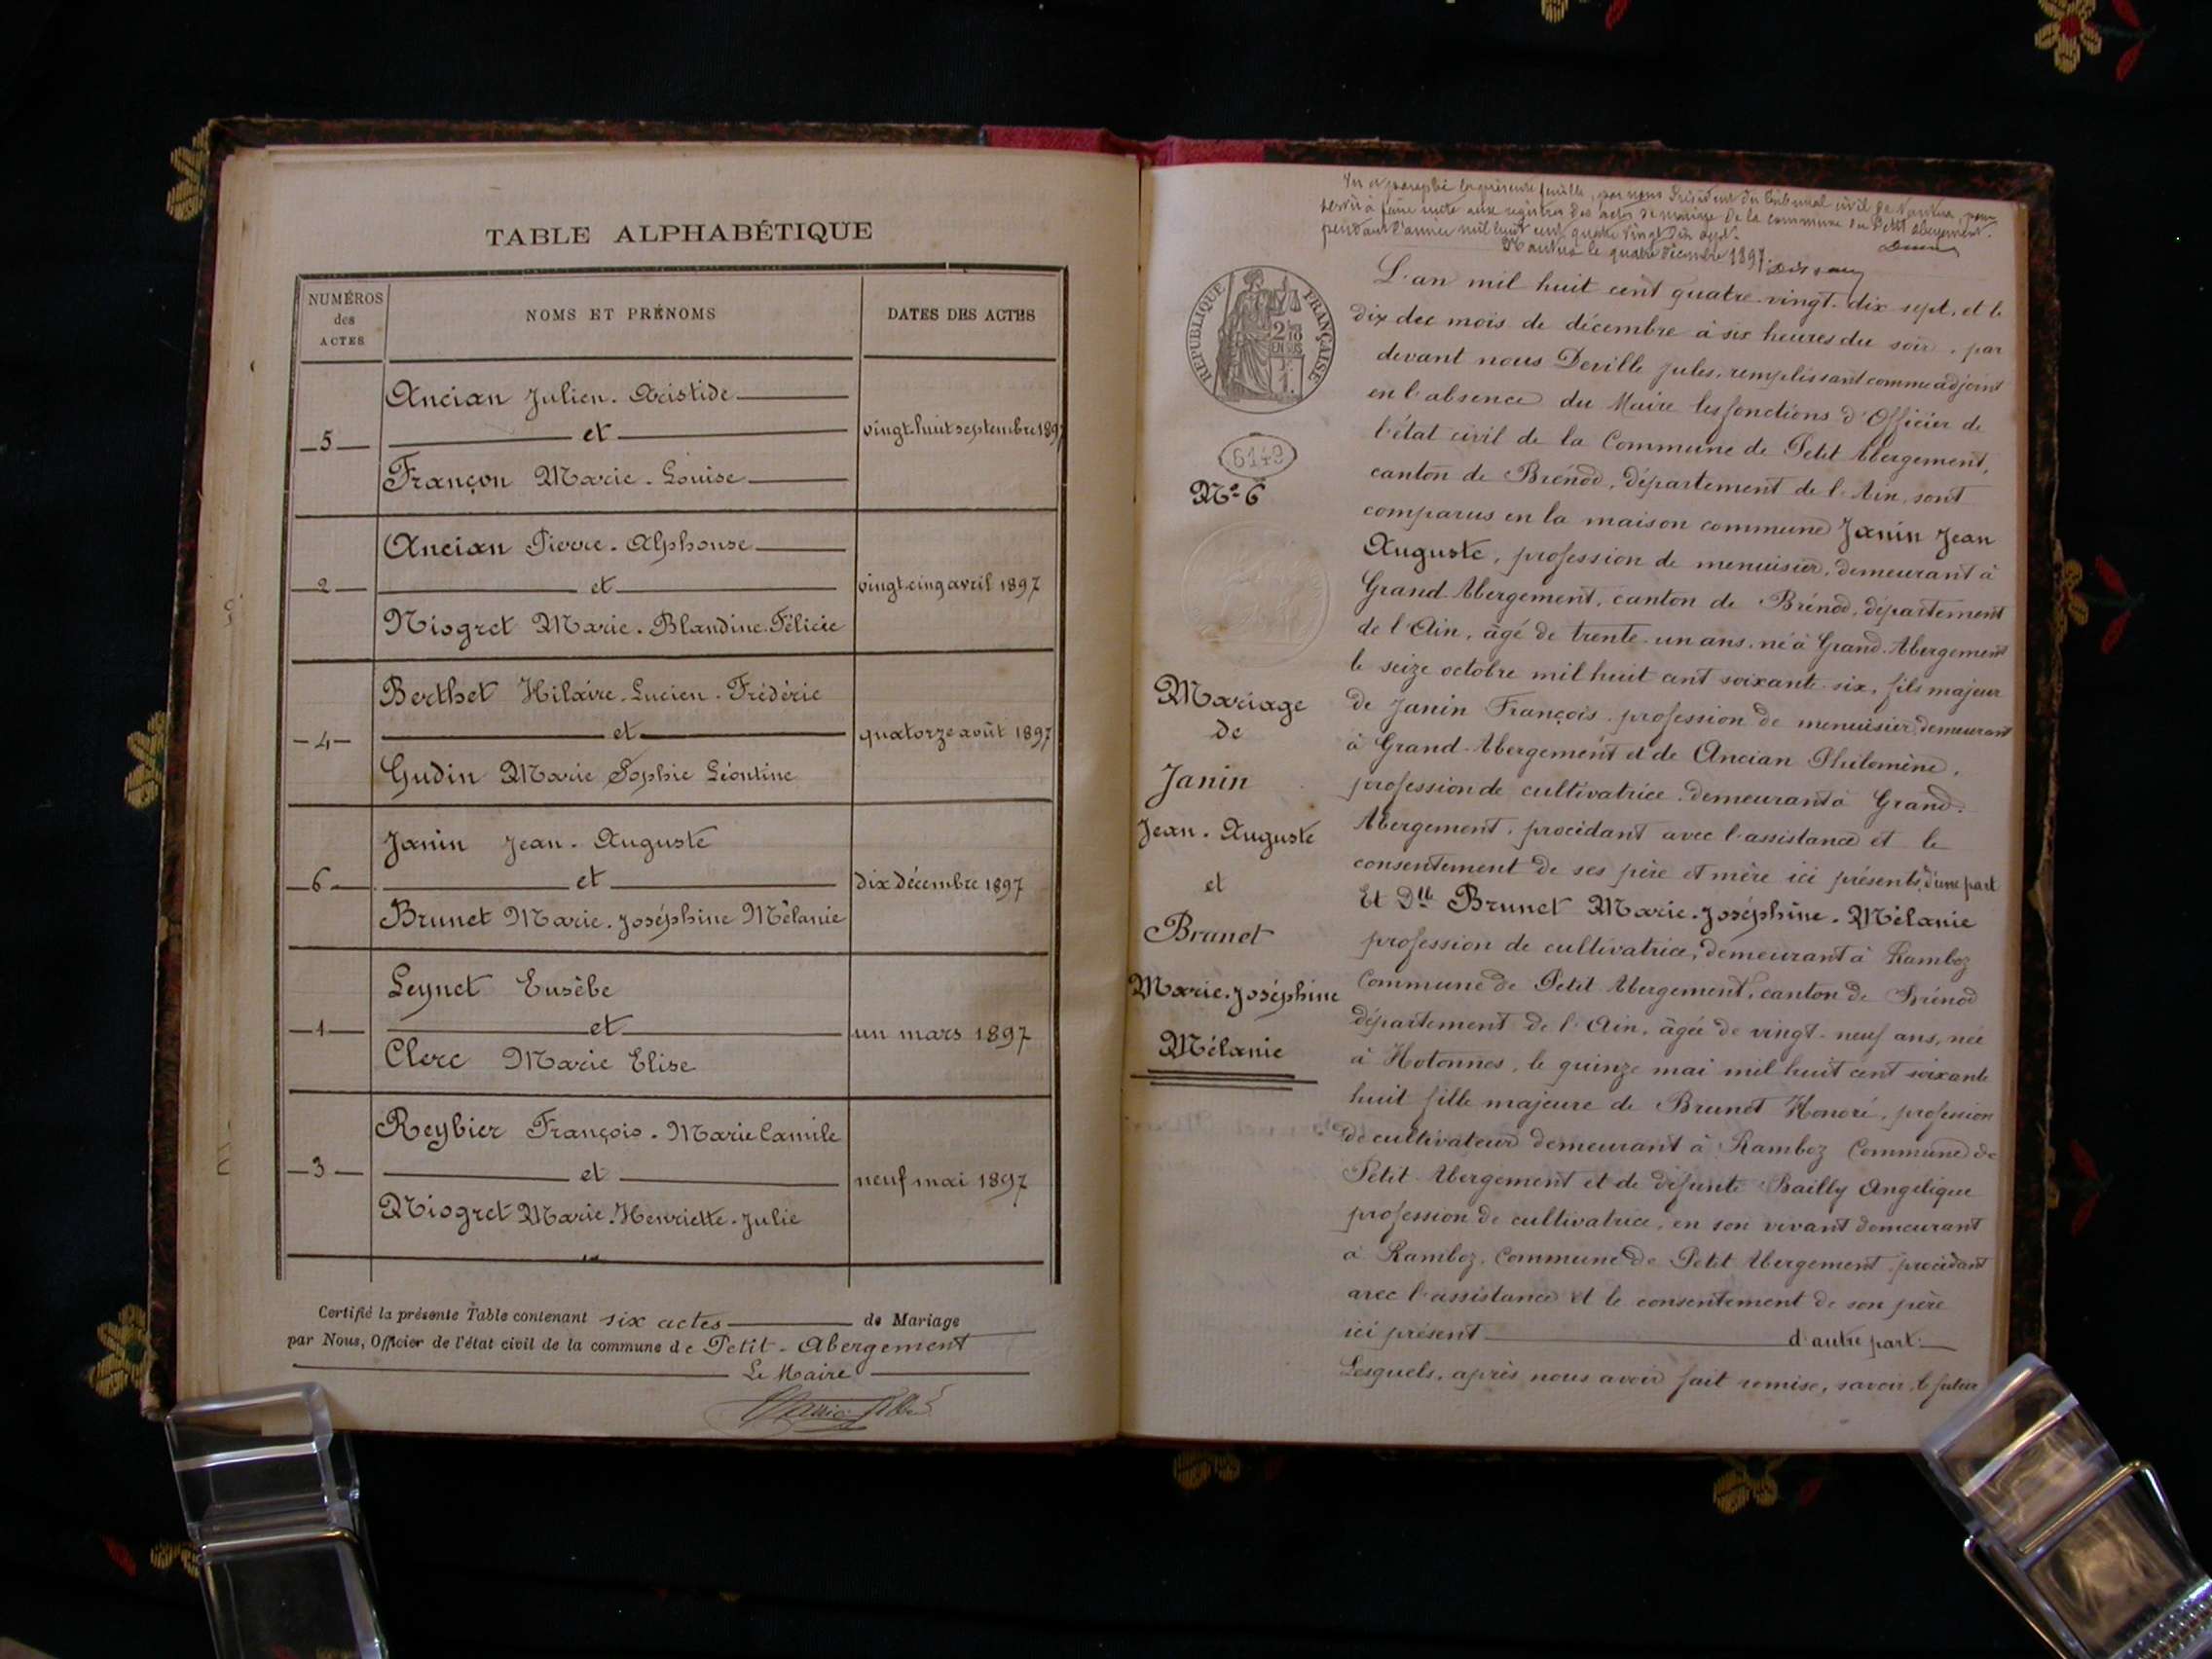 TABLE ALPHABÉTIQUE
NUMÉROS
des
ACTES
NOMS ET PRÉNOMS
DATES DES ACTES
Ancian Julien. Aristide
5
et
vingt-huit septembre 1897
Françon Marie. Louise
Ancian Pierre. Alphonse
2
et
vingt-cinq avril 1897
Niogret Marie. Blandine. Félicie
Berthet Hilaire. Lucien. Frédéric
4
et
quatorze août 1897
Gudin Marie Sophie Léontine
Janin Jean. Auguste
6
et
dix décembre 1897
Brunet Marie. Joséphine Mélanie
Leynet Eusèbe
1
et
un mars 1897
Clerc Marie Elise
Reybier François. Marie Camile
3
et
neuf mai 1897
Niogret Marie. Henriette. Julie
Certifié la présente Table contenant six actes de Mariage
par Nous, Officier de l'état civil de la commune de Petit-Abergement
Le Maire
Vu et paraphé la présente feuille, par nous Président du Tribunal civil de Nantua, pour
servir à faire suite aux registres des actes de mariage de la commune du Petit Abergement.
pendant l'année mil huit cent quatre vingt dix sept.
Nantua le quatre décembre 1897.
RÉPUBLIQUE FRANÇAISE
2/10
EN SUS
1
6149
N° 6
Mariage
de
Janin
Jean. Auguste
et
Brunet
Marie. Joséphine
Mélanie
L'an mil huit cent quatre-vingt-dix sept, et le
dix du mois de décembre à six heures du soir, par
devant nous Deville Jules, remplissant comme adjoint
en l'absence du Maire les fonctions d'Officier de
l'état civil de la Commune de Petit Abergement,
canton de Brénod, département de l'Ain, sont
comparus en la maison commune Janin Jean
Auguste, profession de menuisier, demeurant à
Grand-Abergement, canton de Brénod, département
de l'Ain, âgé de trente-un ans, né à Grand-Abergement
le seize octobre mil huit cent soixante-six, fils majeur
de Janin François, profession de menuisier, demeurant
à Grand-Abergement et de Ancian Philomène,
profession de cultivatrice, demeurant à Grand-
Abergement, procédant avec l'assistance et le
consentement de ses père et mère ici présents, d'une part
Et Dlle Brunet Marie. Joséphine. Mélanie
profession de cultivatrice, demeurant à Ramboz
Commune de Petit Abergement, canton de Brénod
département de l'Ain, âgée de vingt-neuf ans, née
à Hotonnes, le quinze mai mil huit cent soixante
huit fille majeure de Brunet Honoré, profession
de cultivateur demeurant à Ramboz Commune de
Petit-Abergement et de défunte Bailly Angélique
profession de cultivatrice, en son vivant demeurant
à Ramboz, Commune de Petit Abergement, procédant
avec l'assistance et le consentement de son père
ici présent d'autre part.
Lesquels, après nous avoir fait remise, savoir, le futur